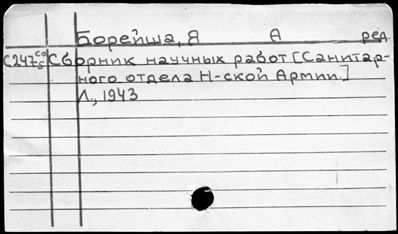 Борейша, Я А ред.
С247 со 5 Сборник научных работ [Санитар-
ного отдела Н-ской Армии.]
Л., 1943